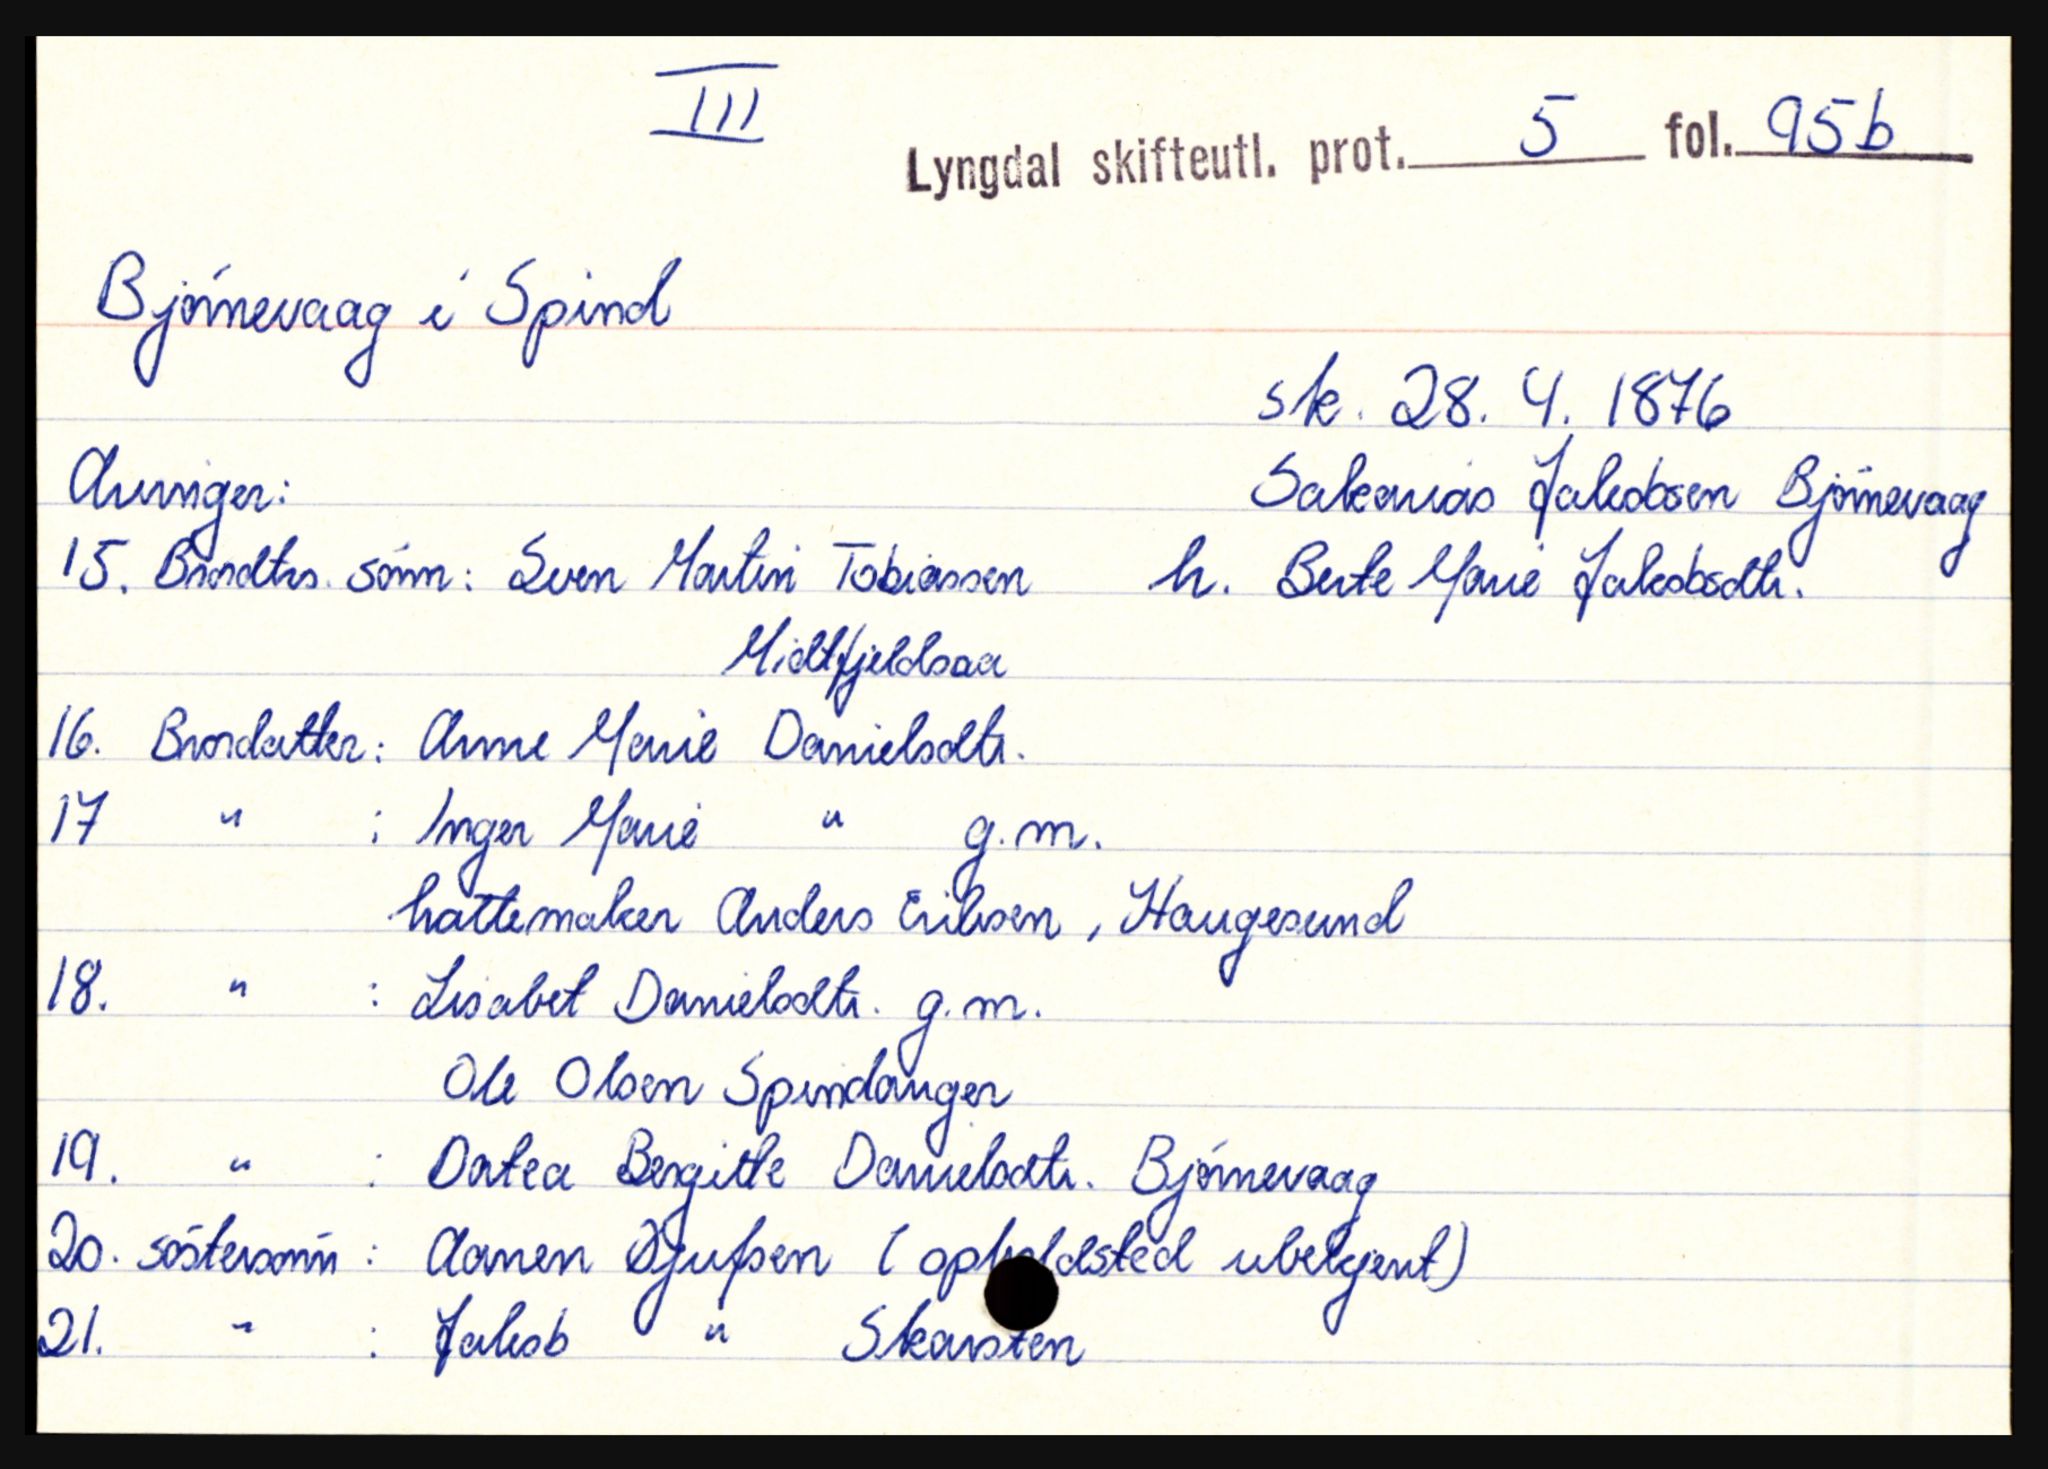 III
Lyngdal skifteutl. prot. 5 fol. 95b
Bjørnevaag i Spind
sk. 28. 4. 1876
Arvinger:
Sakarias Jakobsen Bjørnevaag
15. Brordtrs. sønn: Sven Martin Tobiassen
h. Berte Marie Jakobsdtr.
Midtfjeldsaa
16. Brordatter: Anne Marie Danielsdtr.
17 " : Inger Marie " g.m.
hattemaker Anders Eriksen, Haugesund
18. " : Lisabet Danielsdtr. g.m.
Ole Olsen Spindanger
19. " : Datea Bergitte Danielsdtr. Bjørnevaag
20. søstersønn : Aanen Djufsen (opholdsted ubekjent)
21. " : Jakob " Skarsten